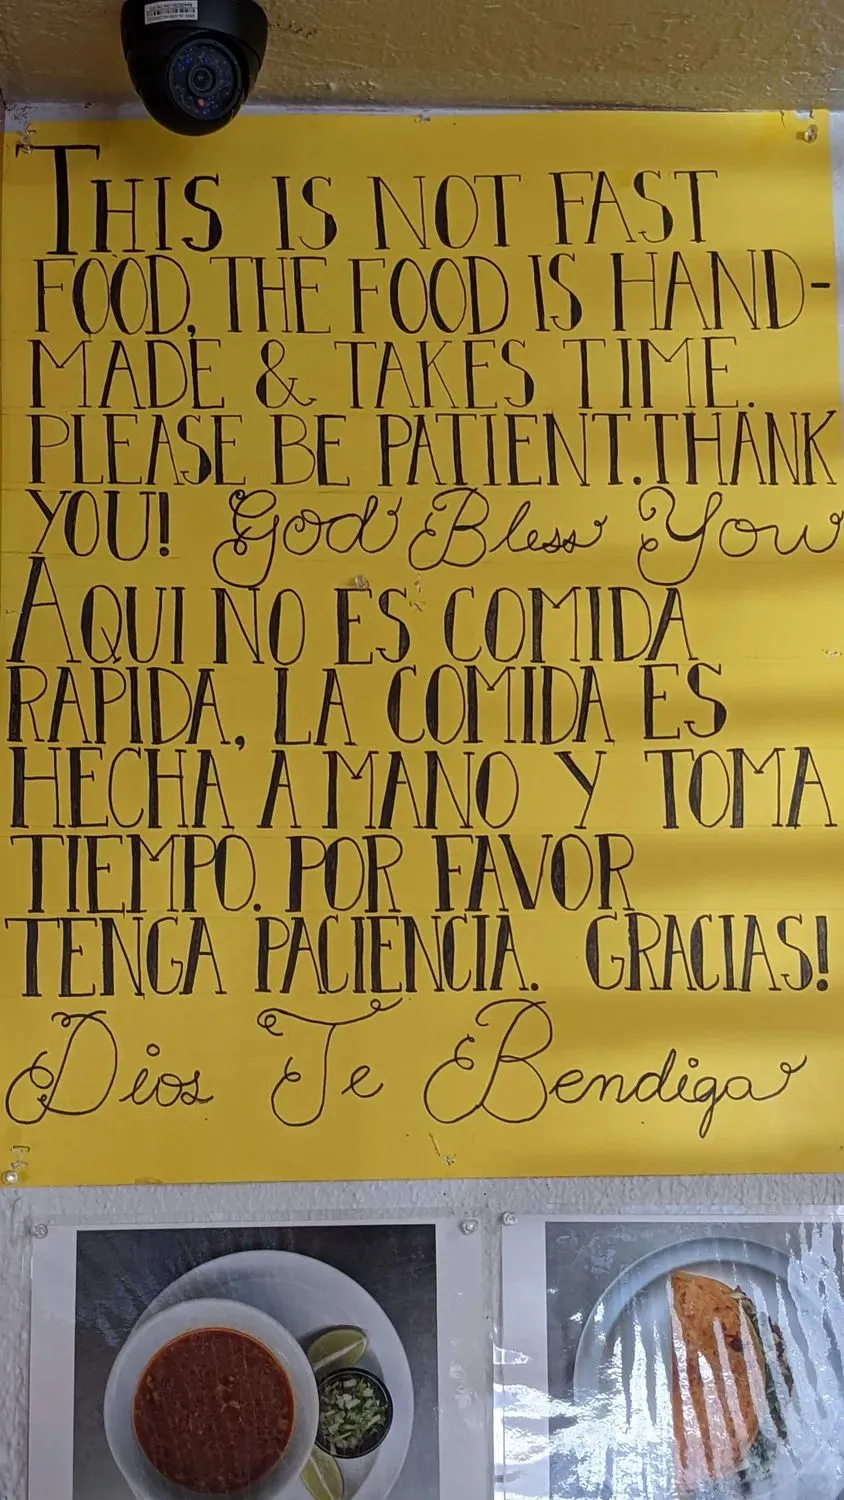 THIS IS NOT FAST
FOOD, THE FOOD IS HAND-
MADE & TAKES TIME.
PLEASE BE PATIENT. THANK
YOU! God Bless You
AQUI NO ES COMIDA
RAPIDA, LA COMIDA ES
HECHA A MANO Y TOMA
TIEMPO. POR FAVOR
TENGA PACIENCIA. GRACIAS!
Dios Te Bendiga